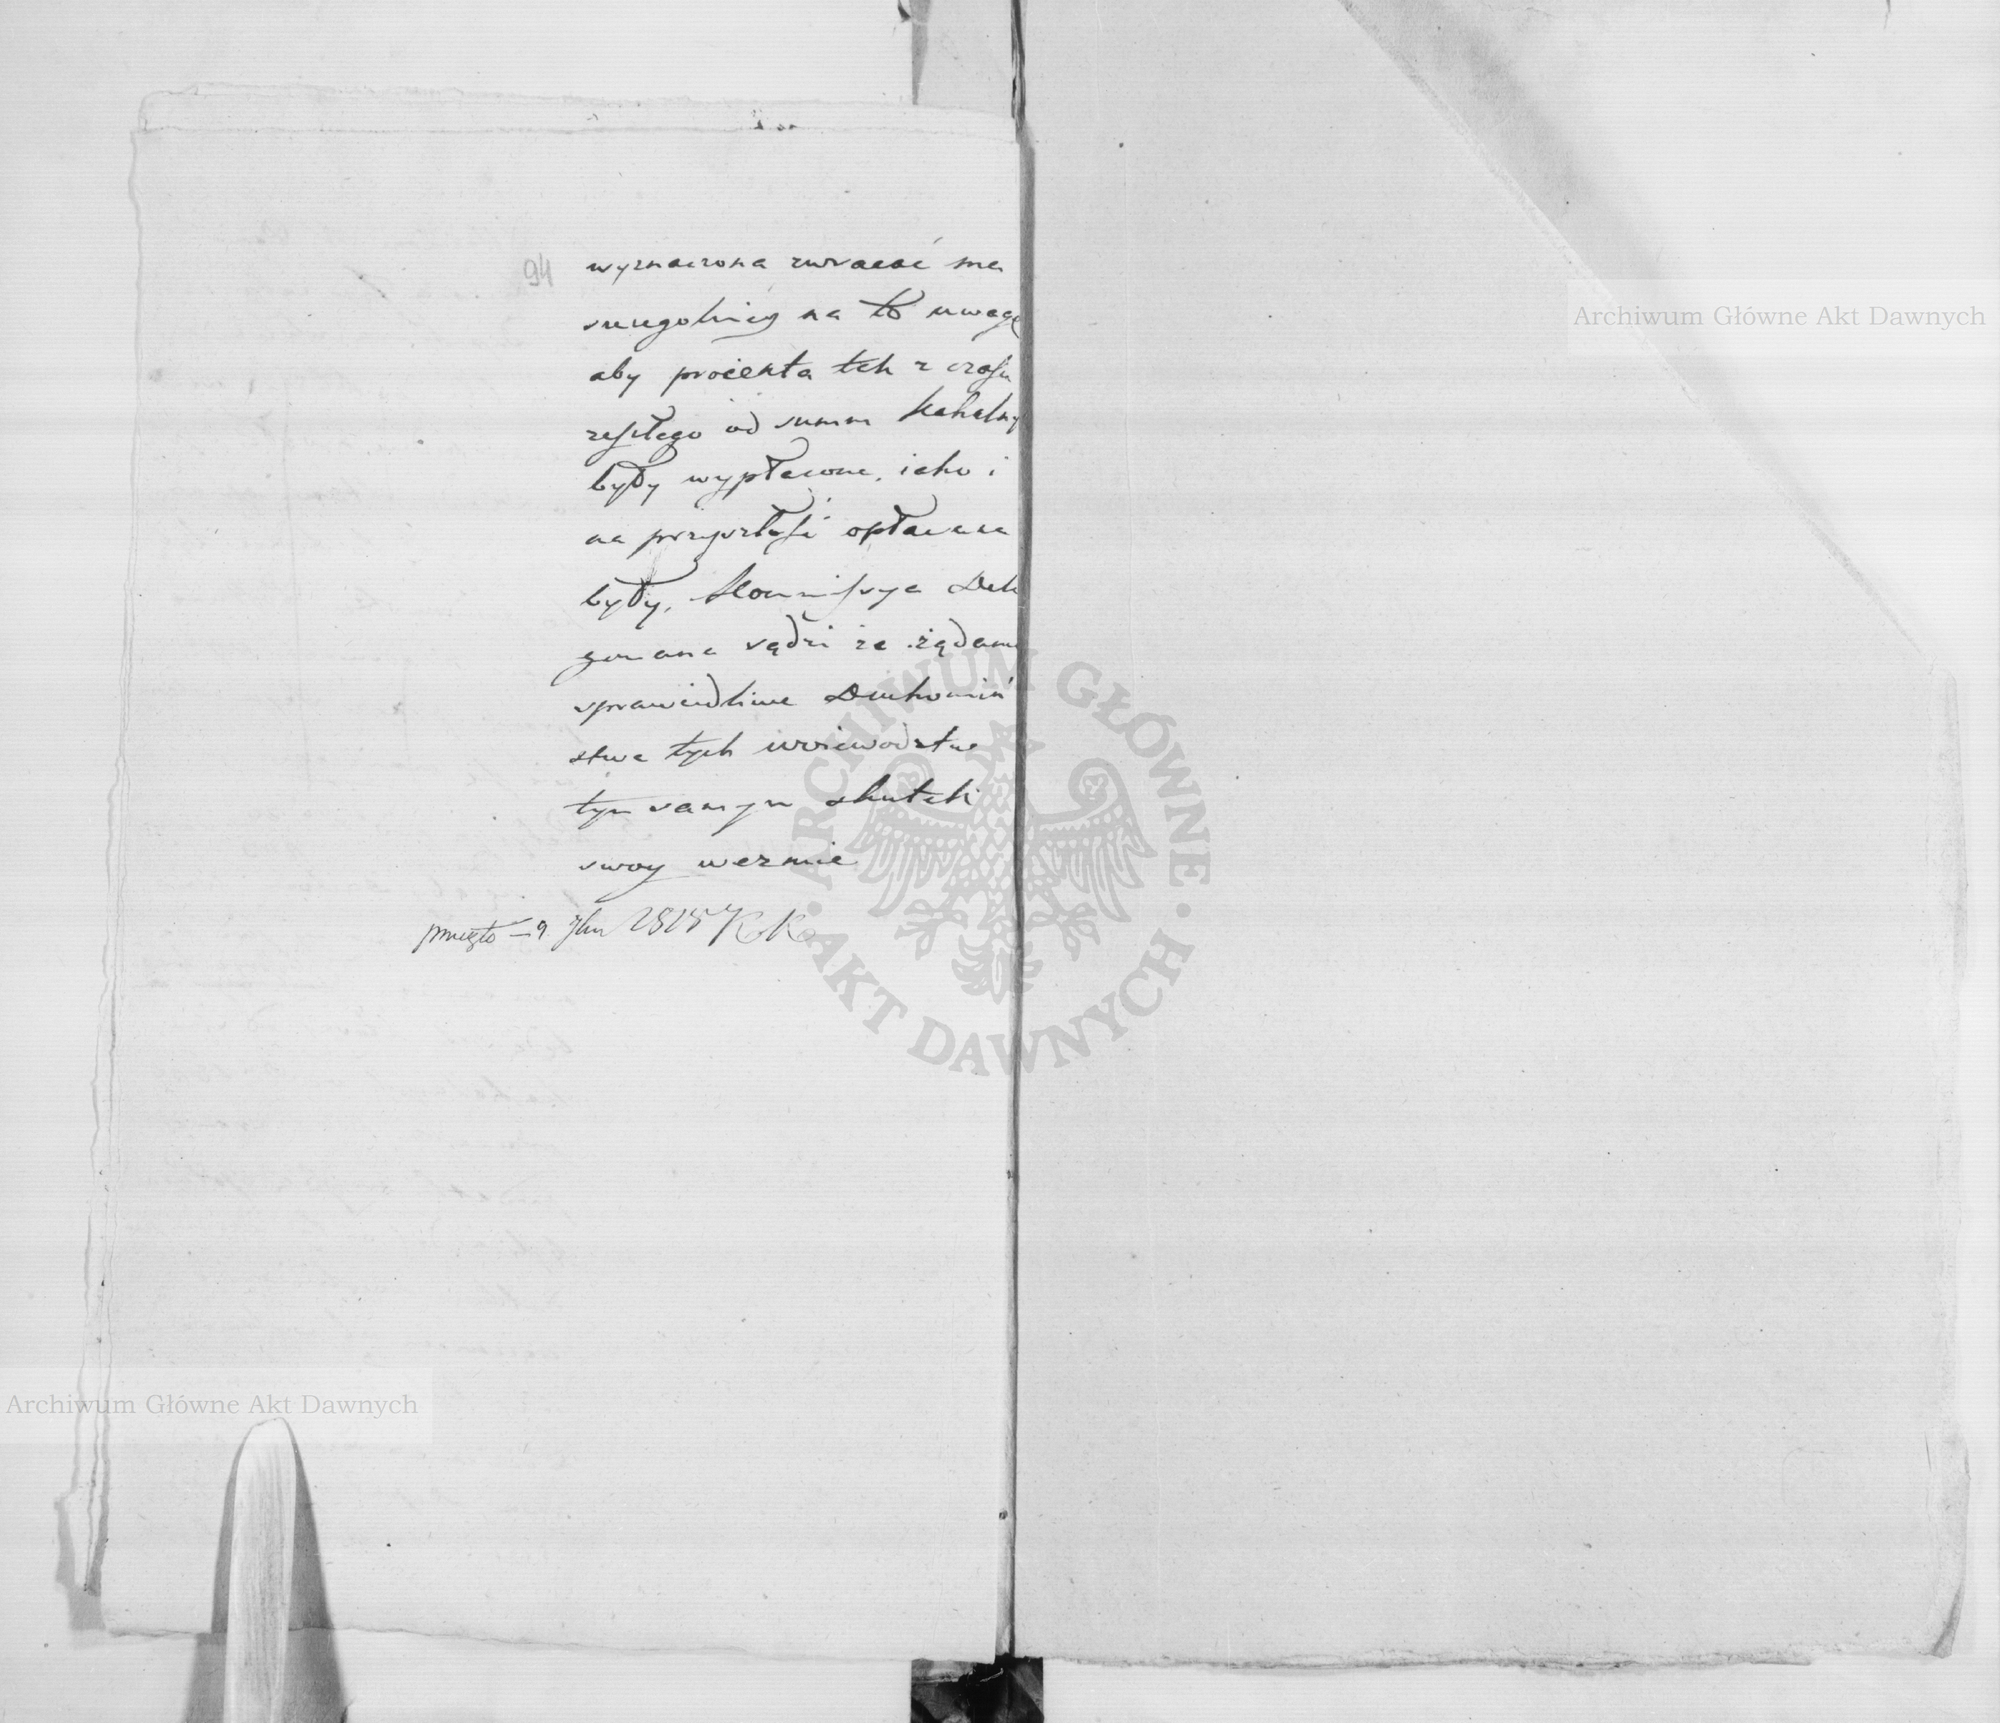 94
wyznaczona zwracać ma
szczegolniey na to uwagę
aby procenta tak z czasu
zeszłego od summ Kahalny
były wypłacone, iako i
na przyszłość opłacane
były, Kommissya Dele
gowana sądzi że żądanie
sprawiedliwe Duchowień
stwa tych woiewodztw
tym samym skutek
swoy wezmie
9 1815 KK
Archiwum Główne Akt Dawnych
Archiwum Główne Akt Dawnych
ARCHIWUM GŁÓWNE • AKT DAWNYCH •